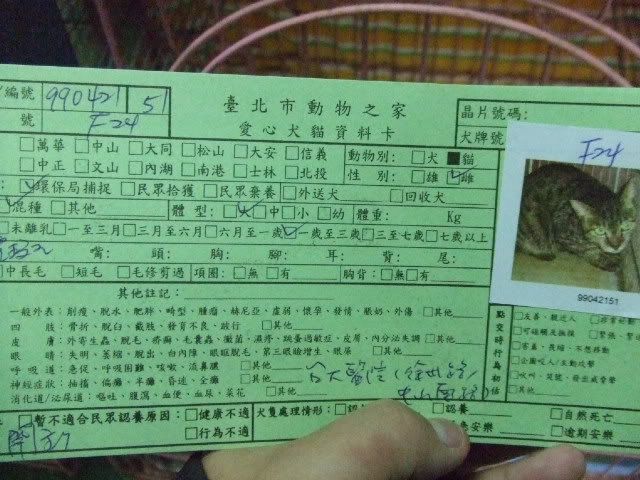 編號 990421 51
臺北市動物之家
晶片號碼:
號 F24
愛心犬貓資料卡
犬牌號
F24
□萬華 □中山 □大同 □松山 □大安 □信義 動物別: □犬 ■貓
□中正 □文山 □內湖 □南港 □士林 □北投 性 別: □雄 □雌
□環保局捕捉 □民眾拾獲 □民眾棄養 □外送犬 □回收犬
□混種 □其他 體 型: □大 □中 □小 □幼 體重: Kg
□未離乳 □一至三月 □三月至六月 □六月至一歲 □一歲至三歲 □三至七歲 □七歲以上
嘴: 頭: 胸: 腳: 耳: 背: 尾:
□中長毛 □短毛 □毛修剪過 項圈: □無 □有 胸背: □無 □有
99042151
其他註記:
一般外表: 削瘦、脫水、肥胖、畸形、腫瘤、赫尼亞、虛弱、懷孕、發情、脹奶、外傷 □其他
四 肢: 骨折、脫臼、截肢、發育不良、跛行 □其他
皮 膚: 外寄生蟲、脫毛、疥癬、毛囊蟲、黴菌、濕疹、跳蚤過敏症、皮屑、內分泌失調 □其他
眼 睛: 失明、萎縮、脫出、白內障、眼眶脫毛、第三眼瞼增生、眼屎 □其他
呼 吸 道: 急促、呼吸困難、咳嗽、流鼻膿 □其他
神經症狀: 抽搐、偏癱、半癱、昏迷、全癱 □其他
消化道/泌尿道: 嘔吐、腹瀉、血便、血尿、菜花 □其他
點交時行為初估
□友善、親近人
□可碰觸及撫摸
□害羞、長縮、不想移動
□企圖咬人/主動攻擊
□吹叫、哭號、發出威脅聲
□其他
台大醫院
暫不適合民眾認養原因: □健康不適
□行為不適
犬隻處理情形:
認養
□自然死亡
安樂
□逾期安樂